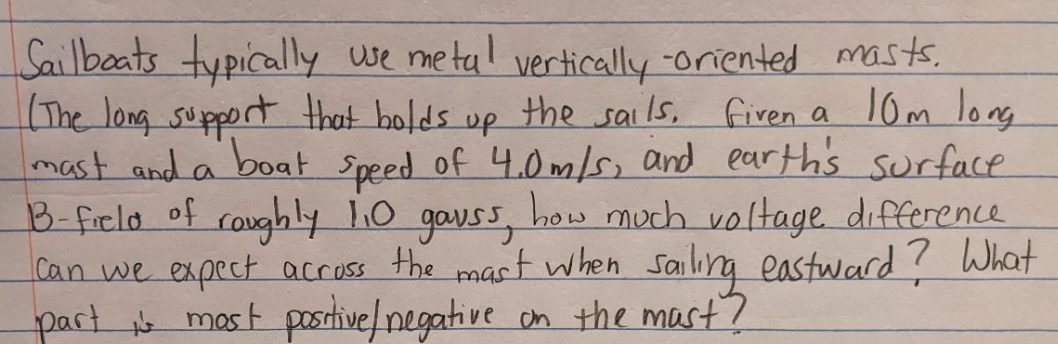 Sailboats typically use metal vertically-oriented masts.
(The long support that holds up the sails. Given a 10m long
mast and a boat speed of 4.0m/s, and earth's surface
B-field of roughly 1.0 gauss, how much voltage difference
can we expect across the mast when sailing eastward? What
part is most positive/negative on the mast?